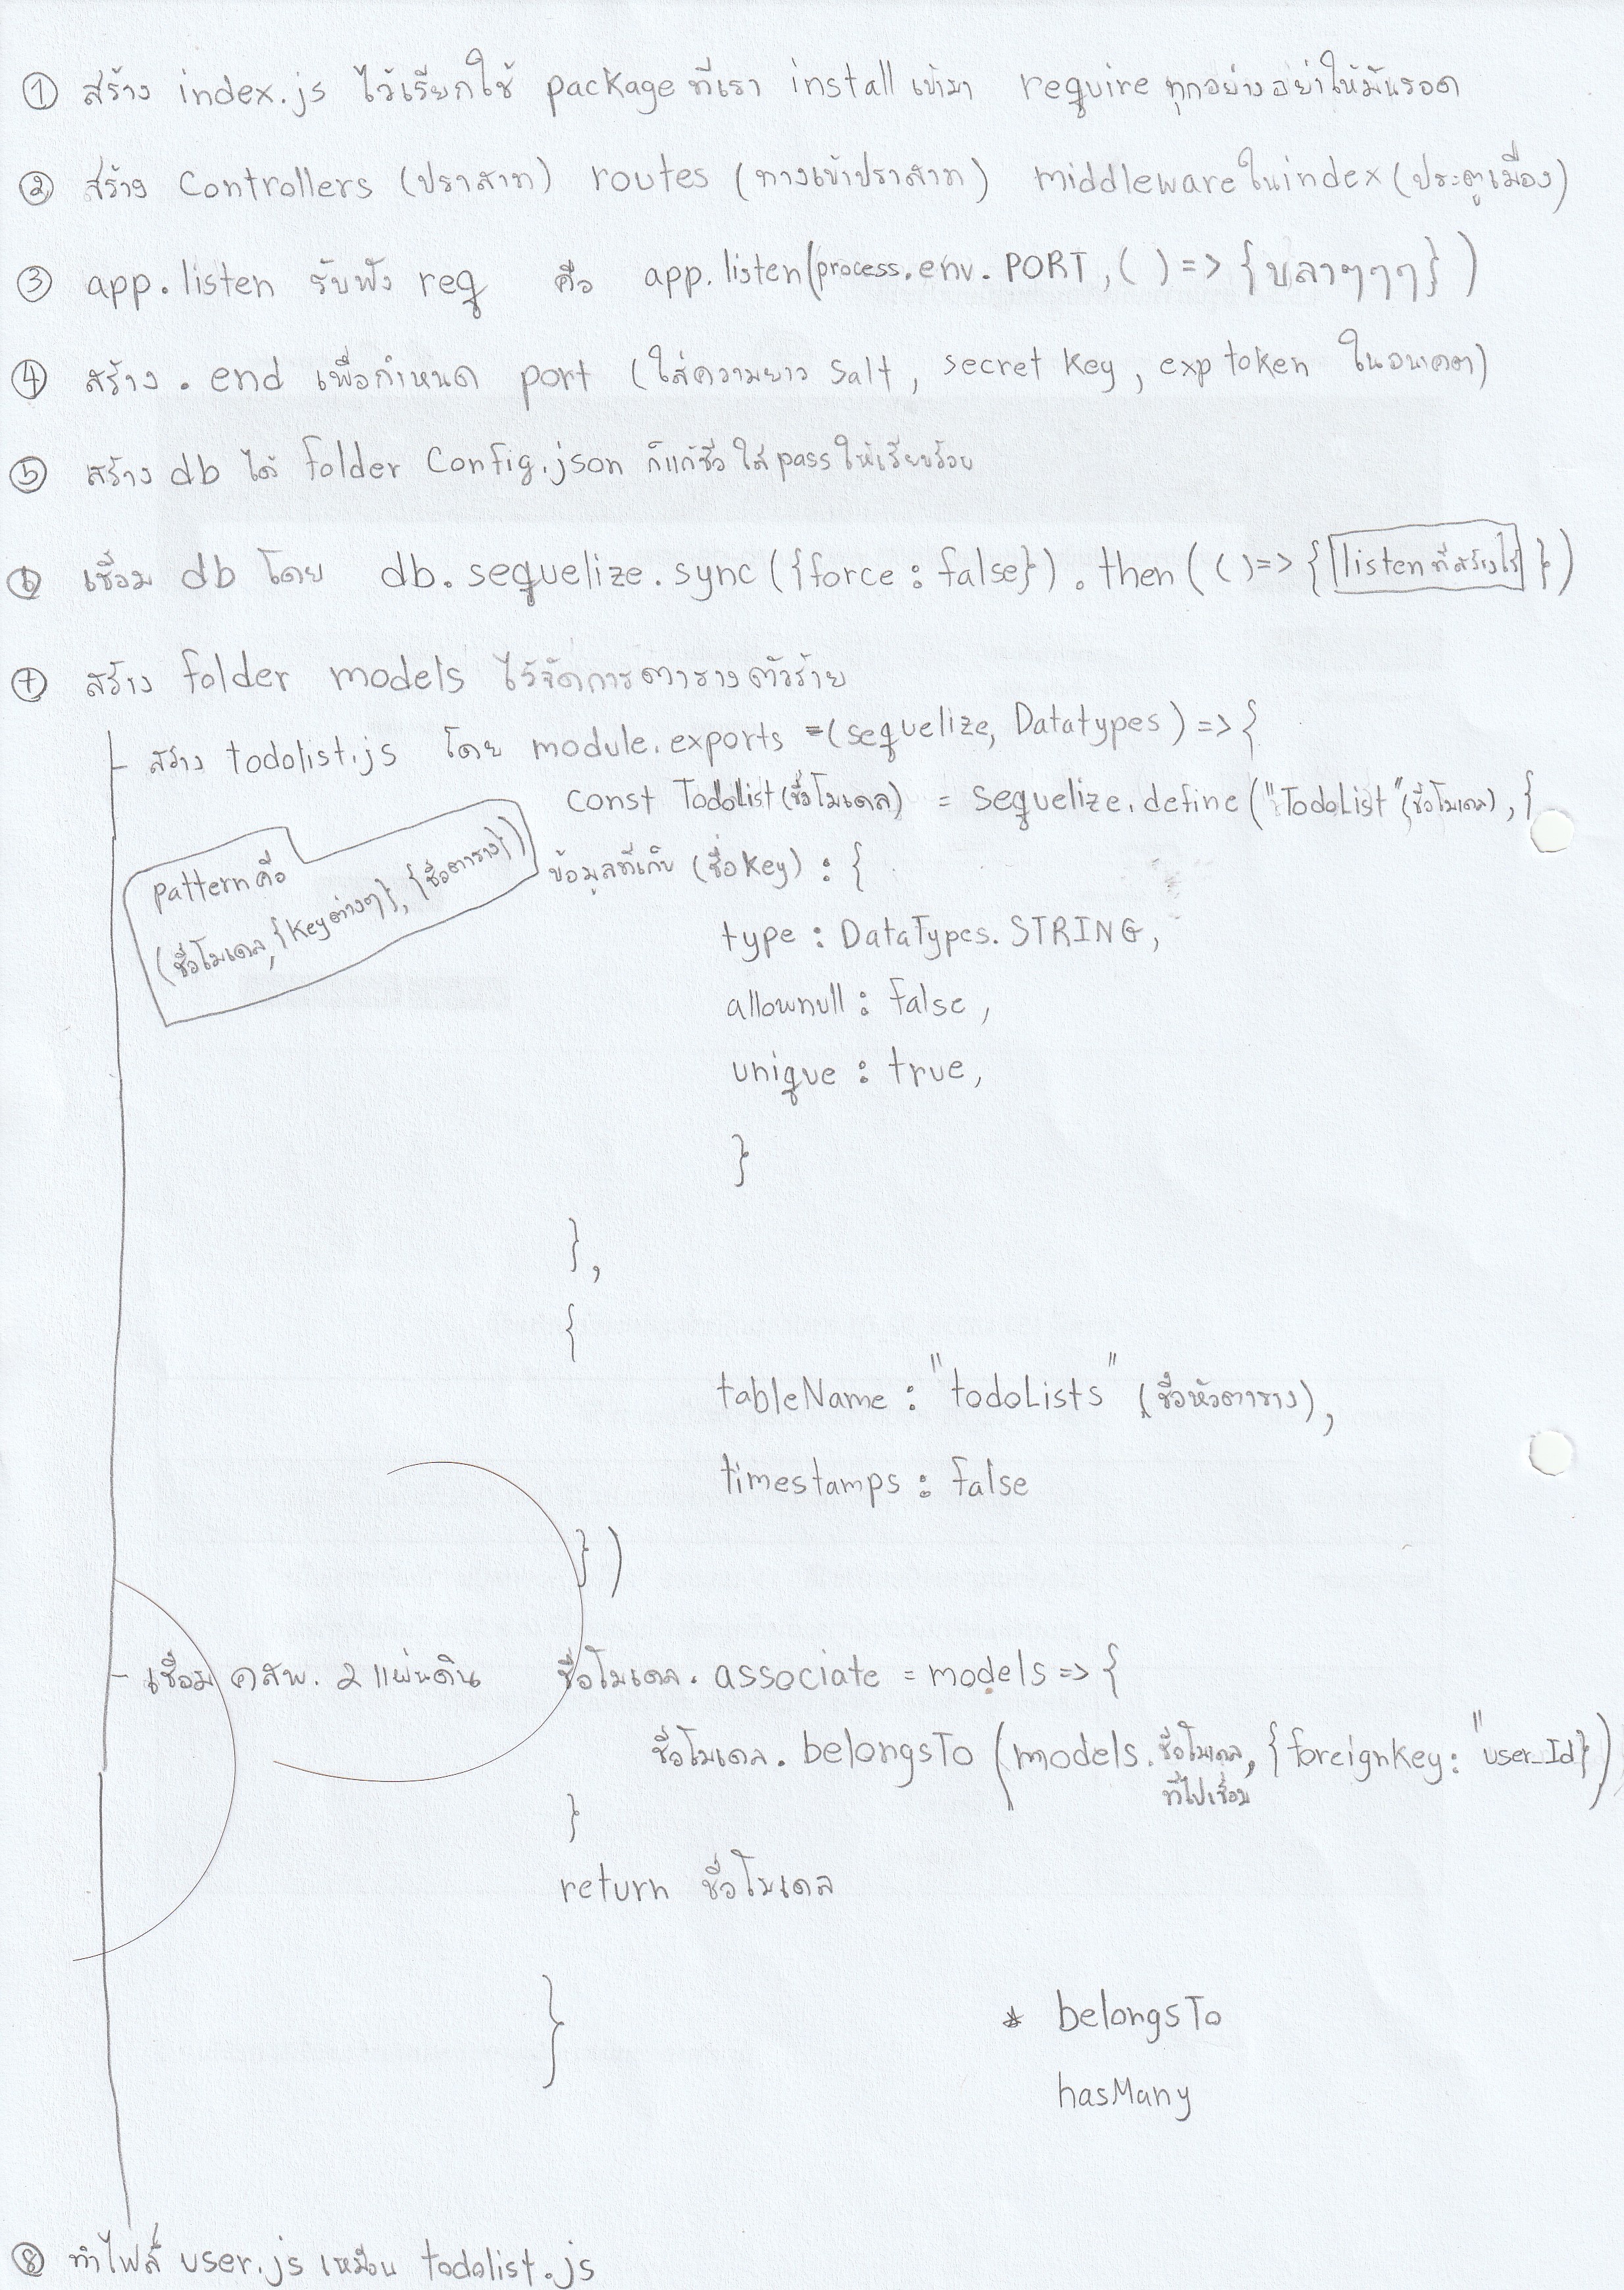 ① สร้าง index.js ไว้เรียกใช้ package ที่เรา install เข้ามา require ทุกอย่างอย่าให้มันรอด
② สร้าง Controllers (ปราสาท) routes (ทางเข้าปราสาท) middleware ใน index (ประตูเมือง)
③ app.listen รับฟัง req คือ app.listen(process.env.PORT, ( ) => {บลาๆๆๆ})
④ สร้าง .end เพื่อกำหนด port (ใส่ความยาว Salt, secret key, exp token ในอนาคต)
⑤ สร้าง db ได้ folder Config.json ก็แก้ชื่อ ใส่ pass ให้เรียบร้อย
⑥ เชื่อม db โดย db.sequelize.sync ({force : false}) . then ( ( ) => { listen ที่สร้างไว้ })
⑦ สร้าง folder models ไว้จัดการตารางตัวร้าย
- สร้าง todolist.js โดย module.exports = (sequelize, Datatypes) => {
const TodoList (ชื่อโมเดล) = sequelize.define ("TodoList" (ชื่อโมเดล), {
pattern คือ
(ชื่อโมเดล, {key ต่างๆ}, {ชื่อตาราง})
ข้อมูลที่เก็บ (ชื่อ key) : {
type : DataTypes. STRING,
allownull : false,
unique : true,
}
},
{
tableName : "todoLists" (ชื่อหัวตาราง),
timestamps : false
})
- เชื่อม คสพ. 2 แผ่นดิน ชื่อโมเดล. associate = models => {
ชื่อโมเดล. belongsTo (models. ชื่อโมเดล, {foreignkey : "user_Id})
ที่ไปเชื่อม
}
return ชื่อโมเดล
}
* belongsTo
hasMany
⑧ ทำไฟล์ user.js เหมือน todolist.js